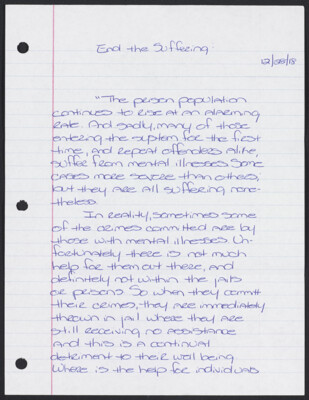 End the Suffering
12/28/18
"The prison population
continues to rise at an alarming
rate. And sadly, many of those
entering the system for the first
time, and repeat offenders alike,
suffer from mental illnesses. Some
cases more severe than others,
but they are all suffering none-
theless.
In reality, sometimes some
of the crimes committed are by
those with mental illnesses. Un-
fortunately there is not much
help for them out there, and
definitely not within the jails
or prisons. So when they committ
their crimes, they are immediately
thrown in jail where they are
still receiving no assistance
and this is a continual
detriment to their well being.
Where is the help for individuals